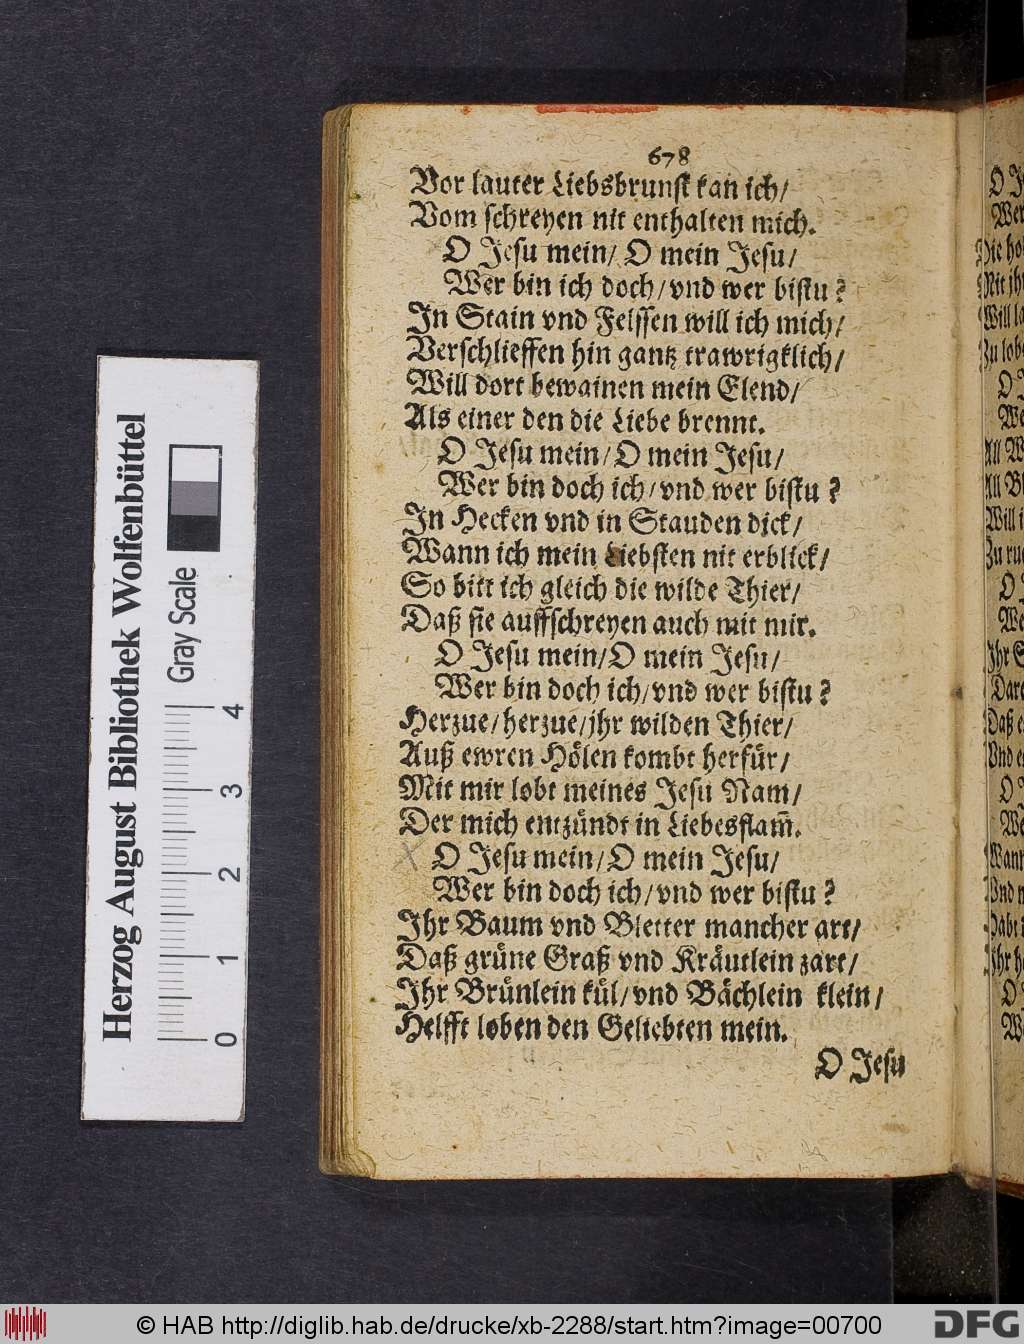 678
Vor lauter Liebsbrunst kan ich/
Vom schreyen nit enthalten mich.
O Jesu mein/ O mein Jesu/
Wer bin ich doch/ vnd wer bistu?
In Stain vnd Felssen will ich mich/
Verschlieffen hin gantz trawrigklich/
Will dort bewainen mein Elend/
Als einer den die Liebe brennt.
O Jesu mein/ O mein Jesu/
Wer bin doch ich/ vnd wer bistu?
In Hecken vnd in Stauden dick/
Wann ich mein Liebsten nit erblick/
So bitt ich gleich die wilde Thier/
Daß sie auffschreyen auch mit mir.
O Jesu mein/ O mein Jesu/
Wer bin doch ich/ vnd wer bistu?
Herzue/ herzue/ jhr wilden Thier/
Auß ewren Hölen kombt herfür/
Mit mir lobt meines Jesu Nam/
Der mich entzündt in Liebesflam̄.
O Jesu mein/ O mein Jesu/
Wer bin doch ich/ vnd wer bistu?
Ihr Baum vnd Bletter mancher art/
Daß grüne Graß vnd Kräutlein zart/
Ihr Brünlein kül/ vnd Bächlein klein/
Helfft loben den Geliebten mein.
O Jesu
Herzog August Bibliothek Wolfenbüttel
Gray Scale
0 1 2 3 4
© HAB http://diglib.hab.de/drucke/xb-2288/start.htm?image=00700
DFG